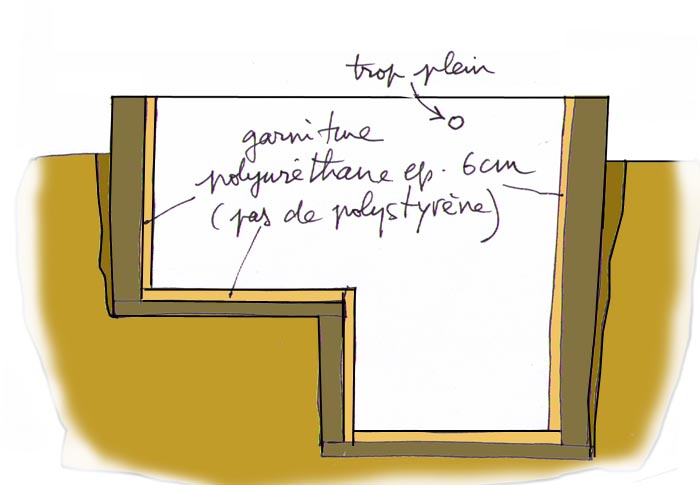 trop plein
garniture
polyuréthane ep. 6cm
(pas de polystyrène)